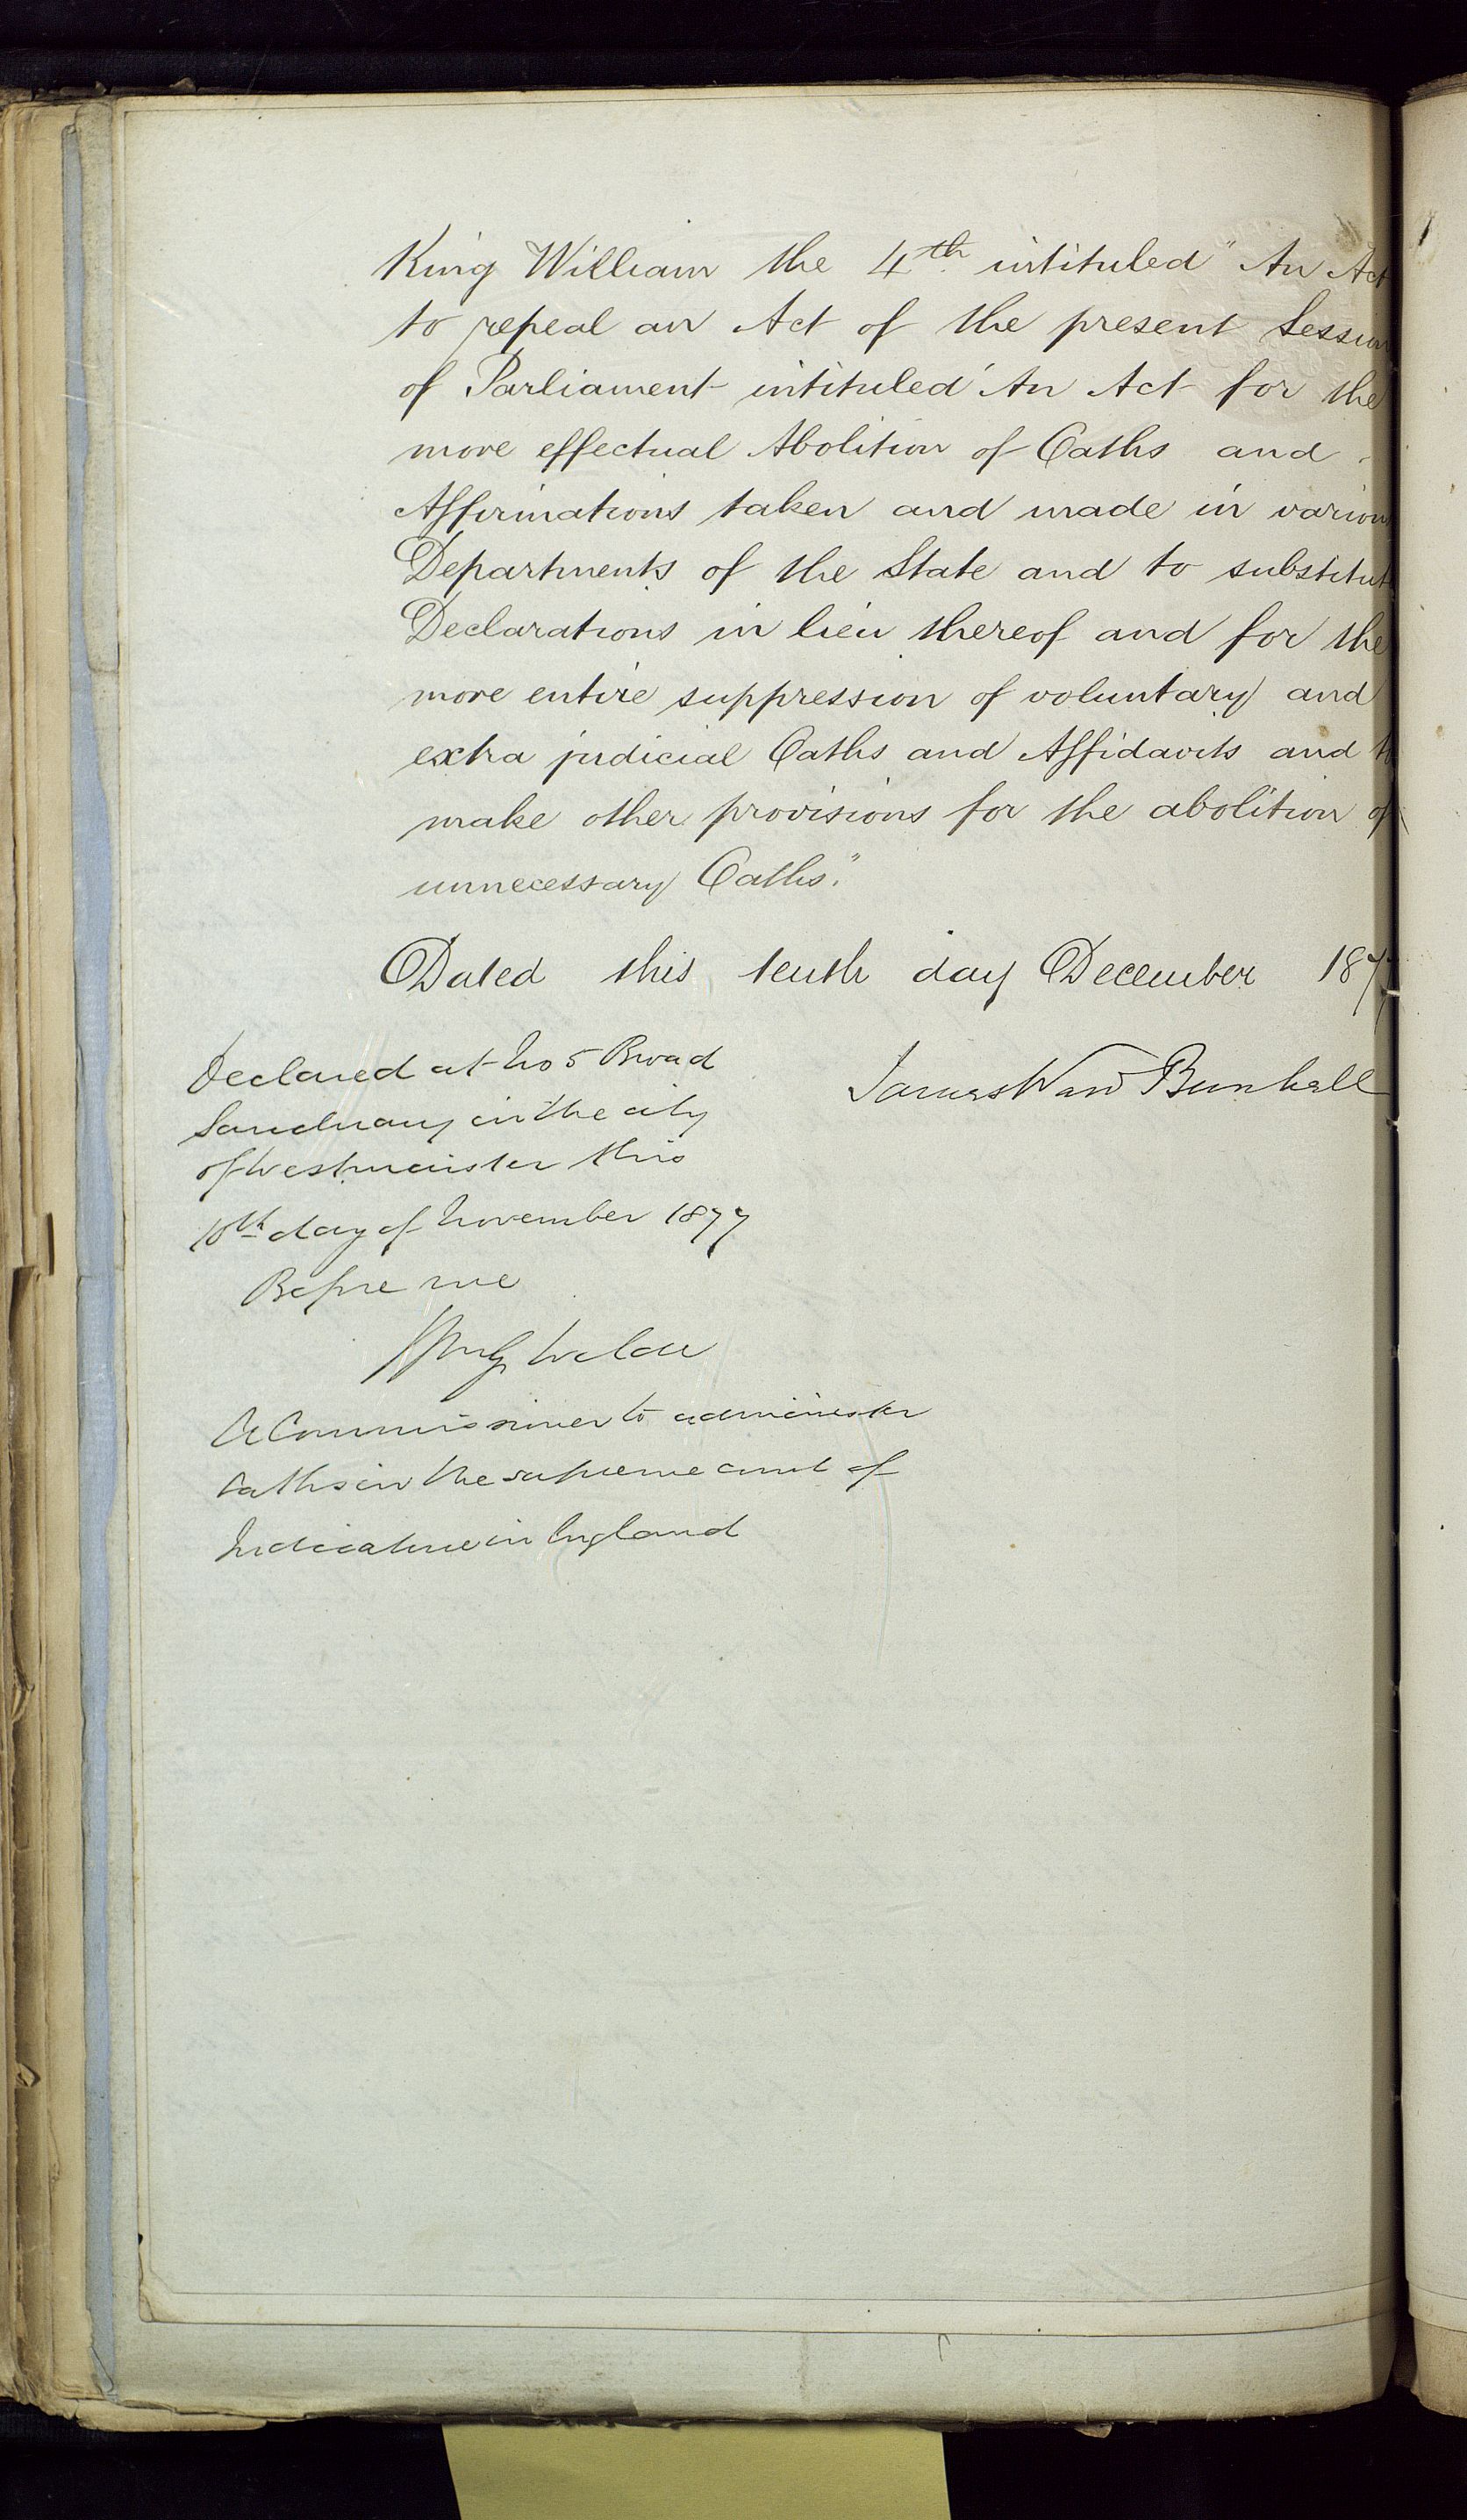 King William the 4th intituled "An Act
to repeal an Act of the present Session
of Parliament intituled "An Act for the
more effectual Abolition of Oaths and
Affirmations taken and made in various
Departments of the State and to substitute
Declarations in lieu thereof and for the
more entire suppression of voluntary and
extra judicial Oaths and Affidavits and to
make other provisions for the abolition of
unnecessary Oaths."
Dated this tenth day December 1877
Declared at No 5 Broad
Sanctuary in the city
of Westminster this
10th day of November 1877
Before me
James Ward Bunhall
A Commissioner to administer
oaths in the supreme court of
Judicature in England